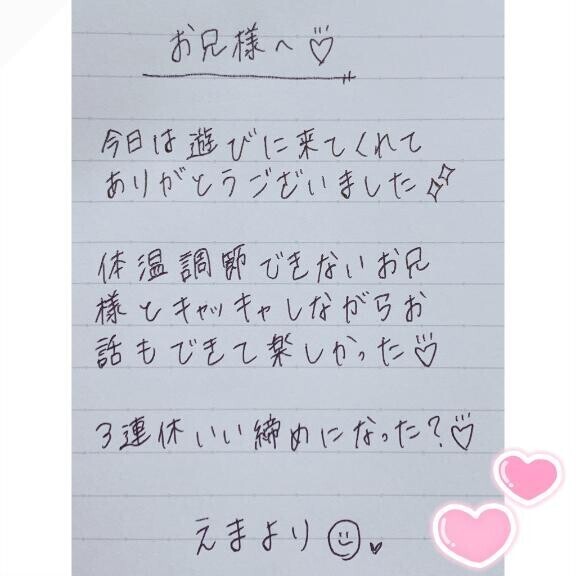 お兄様へ♡
今日は遊びに来てくれて
ありがとうございました✨
体温調節できないお兄
様とキャッキャしながらお
話もできて楽しかった♡
3連休いい締めになった?♡
えまより☺♥